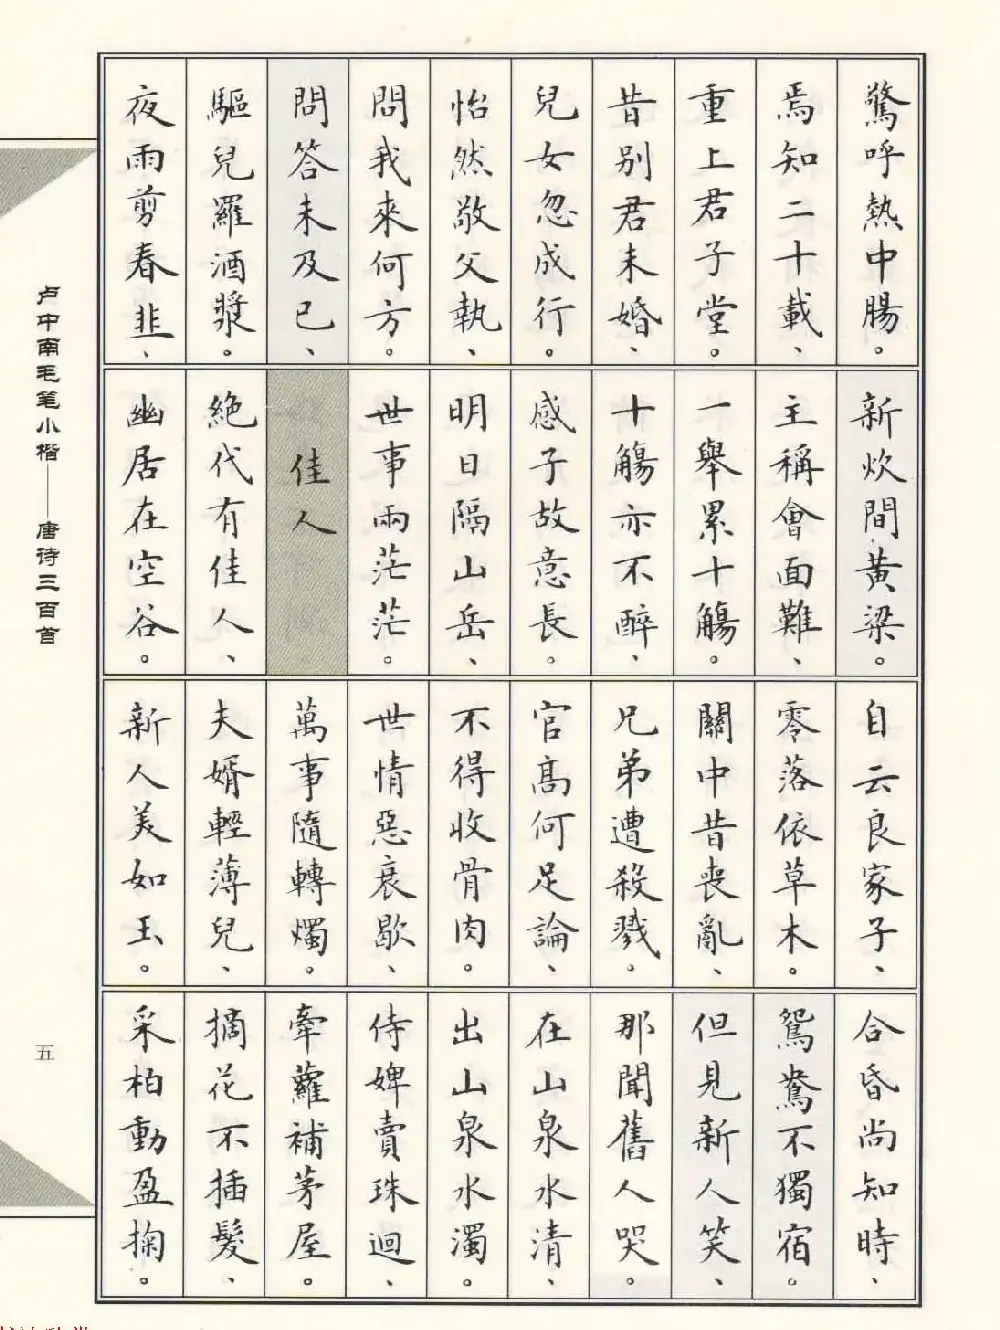 驚呼熱中腸。
焉知二十載、
重上君子堂。
昔别君未婚、
兒女忽成行。
怡然敬父執、
問我來何方。
問答未及已、
驅兒羅酒漿。
夜雨剪春韭、
新炊間黄梁。
主稱會面難、
一舉累十觴。
十觴亦不醉、
感子故意長。
明日隔山岳、
世事兩茫茫。
佳人
絶代有佳人、
幽居在空谷。
自云良家子、
零落依草木。
關中昔喪亂、
兄弟遭殺戮。
官高何足論、
不得收骨肉。
世情惡衰歇、
萬事隨轉燭。
夫婿輕薄兒、
新人美如玉。
合昏尚知時、
鴛鴦不獨宿。
但見新人笑、
那聞舊人哭。
在山泉水清、
出山泉水濁。
侍婢賣珠迴、
牽蘿補茅屋。
摘花不插髮、
采柏動盈掬。
卢中南毛笔小楷——唐诗三百首
五